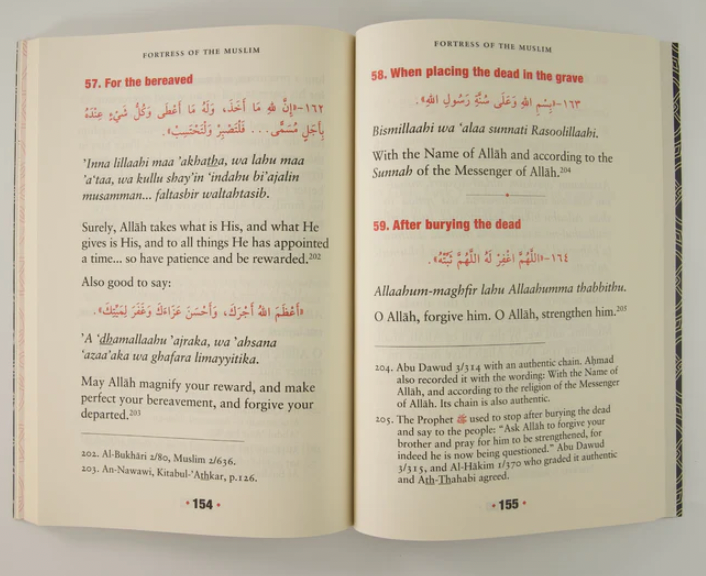 FORTRESS OF THE MUSLIM
57. For the bereaved
١٦٢-«إِنَّ لِلَّهِ مَا أَخَذَ، وَلَهُ مَا أَعْطَى وَكُلُّ شَيْءٍ عِنْدَهُ
بِأَجَلٍ مُسَمًّى... فَلْتَصْبِرْ وَلْتَحْتَسِبْ».
'Inna lillaahi maa 'akhatha, wa lahu maa
'a'taa, wa kullu shay'in 'indahu bi'ajalin
musamman... faltasbir waltahtasib.
Surely, Allāh takes what is His, and what He
gives is His, and to all things He has appointed
a time... so have patience and be rewarded.202
Also good to say:
«أَعْظَمَ اللهُ أَجْرَكَ، وَأَحْسَنَ عَزَاءَكَ وَغَفَرَ لِمَيِّتِكَ».
'A 'dhamallaahu 'ajraka, wa 'ahsana
'azaa'aka wa ghafara limayyitika.
May Allāh magnify your reward, and make
perfect your bereavement, and forgive your
departed.203
202. Al-Bukhāri 2/80, Muslim 2/636.
203. An-Nawawi, Kitabul-'Athkar, p.126.
• 154 •
FORTRESS OF THE MUSLIM
58. When placing the dead in the grave
١٦٣-«بِسْمِ اللهِ وَعَلَى سُنَّةِ رَسُولِ اللهِ».
Bismillaahi wa 'alaa sunnati Rasoolillaahi.
With the Name of Allāh and according to the
Sunnah of the Messenger of Allāh.204
59. After burying the dead
١٦٤-«اللَّهُمَّ اغْفِرْ لَهُ اللَّهُمَّ ثَبِّتْهُ».
Allaahum-maghfir lahu Allaahumma thabbithu.
O Allāh, forgive him. O Allāh, strengthen him.205
204. Abu Dawud 3/314 with an authentic chain. Aḥmad
also recorded it with the wording: With the Name of
Allāh, and according to the religion of the Messenger
of Allāh. Its chain is also authentic.
205. The Prophet ﷺ used to stop after burying the dead
and say to the people: "Ask Allāh to forgive your
brother and pray for him to be strengthened, for
indeed he is now being questioned." Abu Dawud
3/315, and Al-Hākim 1/370 who graded it authentic
and Ath-Thahabi agreed.
• 155 •